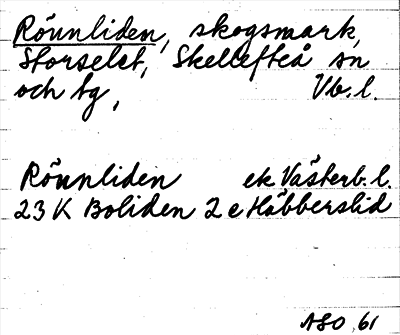 Röunliden, skogsmark,
Storselet, Skellefteå sn
och tg, Vb. l.
Röunliden ek Västerb. l.
23 K Boliden 2 e Häbberslid
ASO 61